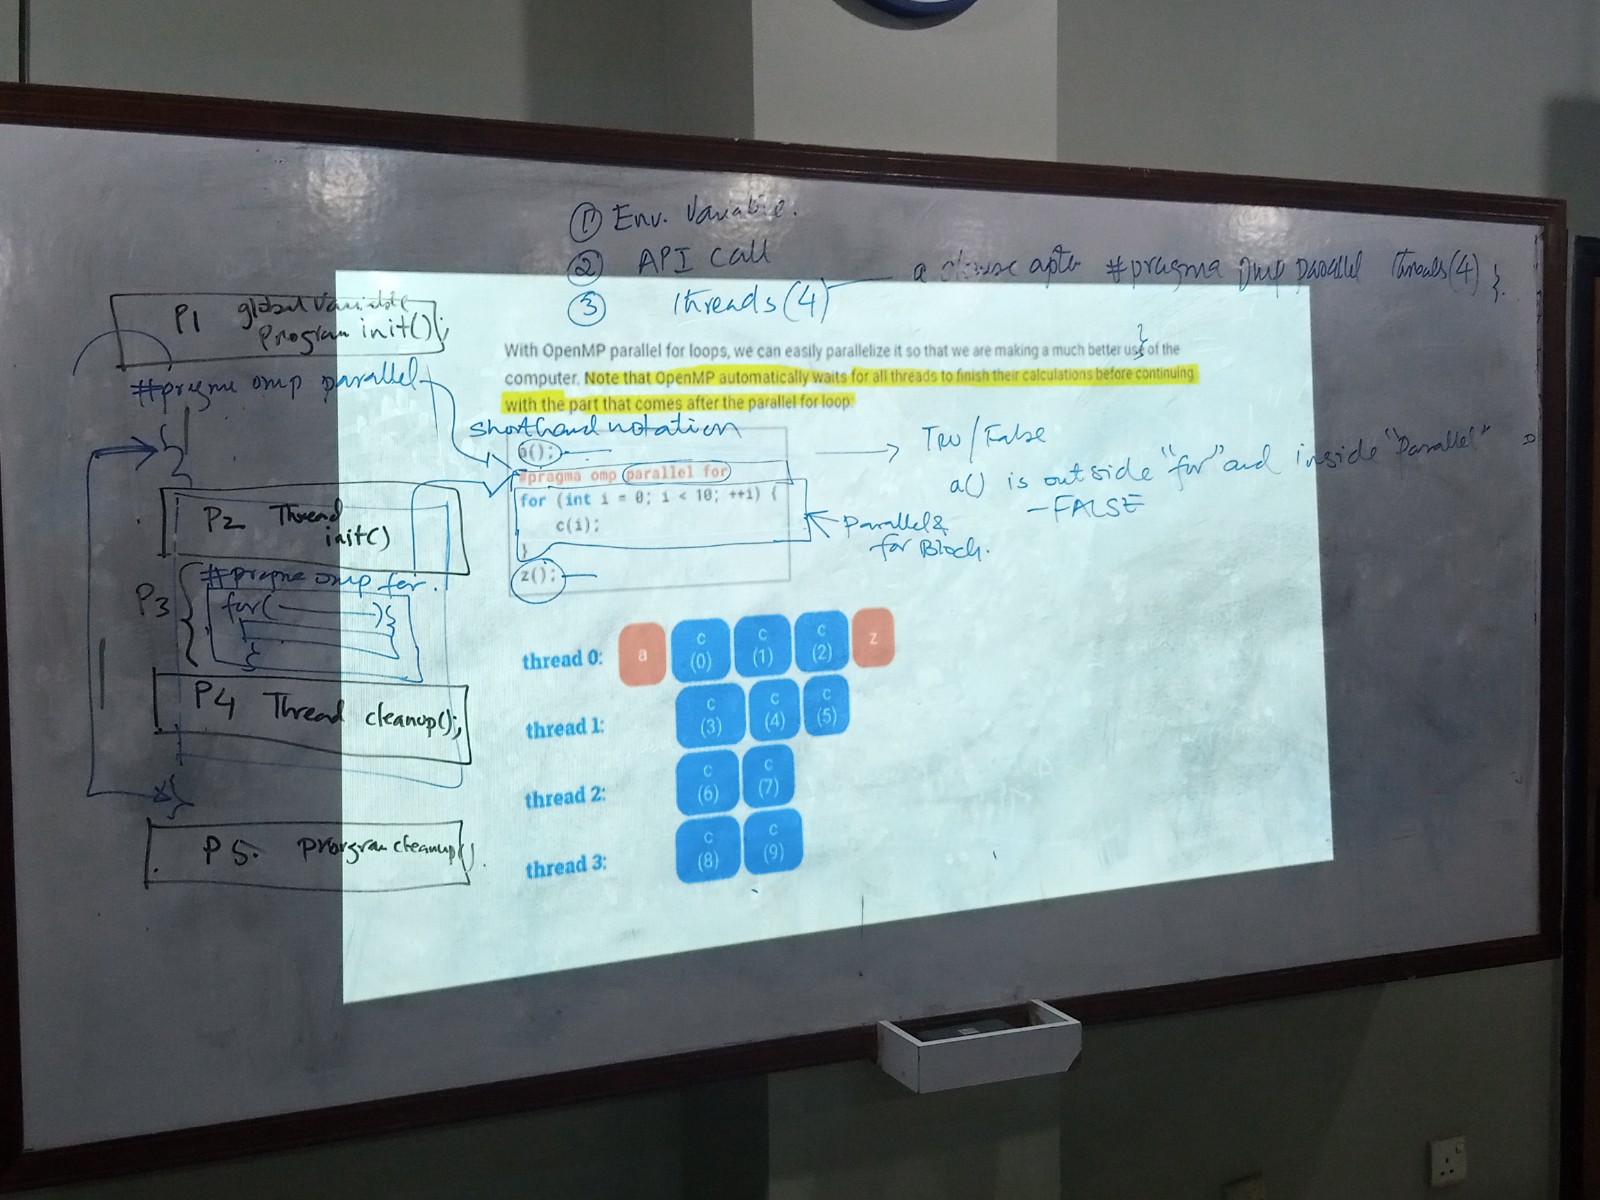 ① Env. Variable.
② API Call
③ threads(4)
a clause after #pragma omp parallel threads(4) }.
P1 global variable
Program init();
#pragma omp parallel
{
P2 Thread
init()
P3 {
#pragma omp for.
for( ){
}
P4 Thread cleanup();
}
P5. program cleanup().
With OpenMP parallel for loops, we can easily parallelize it so that we are making a much better use of the
computer. Note that OpenMP automatically waits for all threads to finish their calculations before continuing
with the part that comes after the parallel for loop:
Shorthand notation
a();
#pragma omp parallel for
for (int i = 0; i < 10; ++i) {
c(i);
}
z();
Tru/False
a() is outside "for" and inside "Parallel"
- FALSE
Parallel &
for Block.
thread 0: a c(0) c(1) c(2) z
thread 1: c(3) c(4) c(5)
thread 2: c(6) c(7)
thread 3: c(8) c(9)